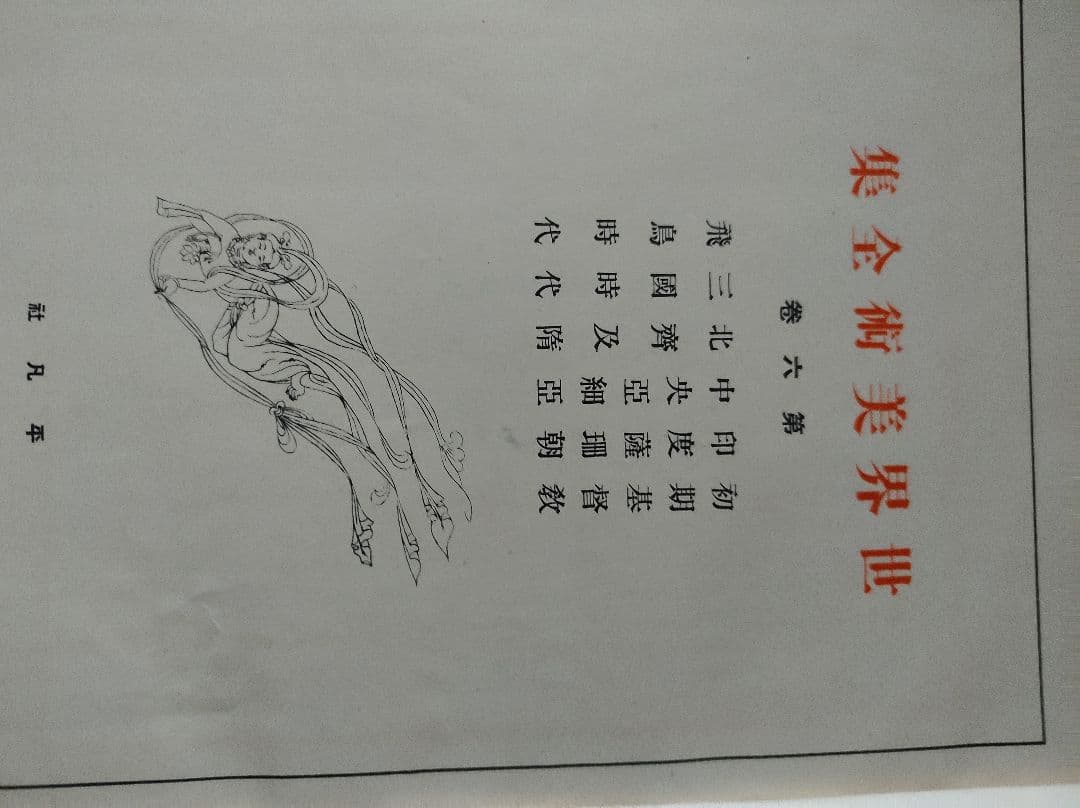 世界美術全集
第六卷
初期基督教
印度薩珊朝
中央亞細亞
北齊及隋
三國時代
飛鳥時代
平凡社